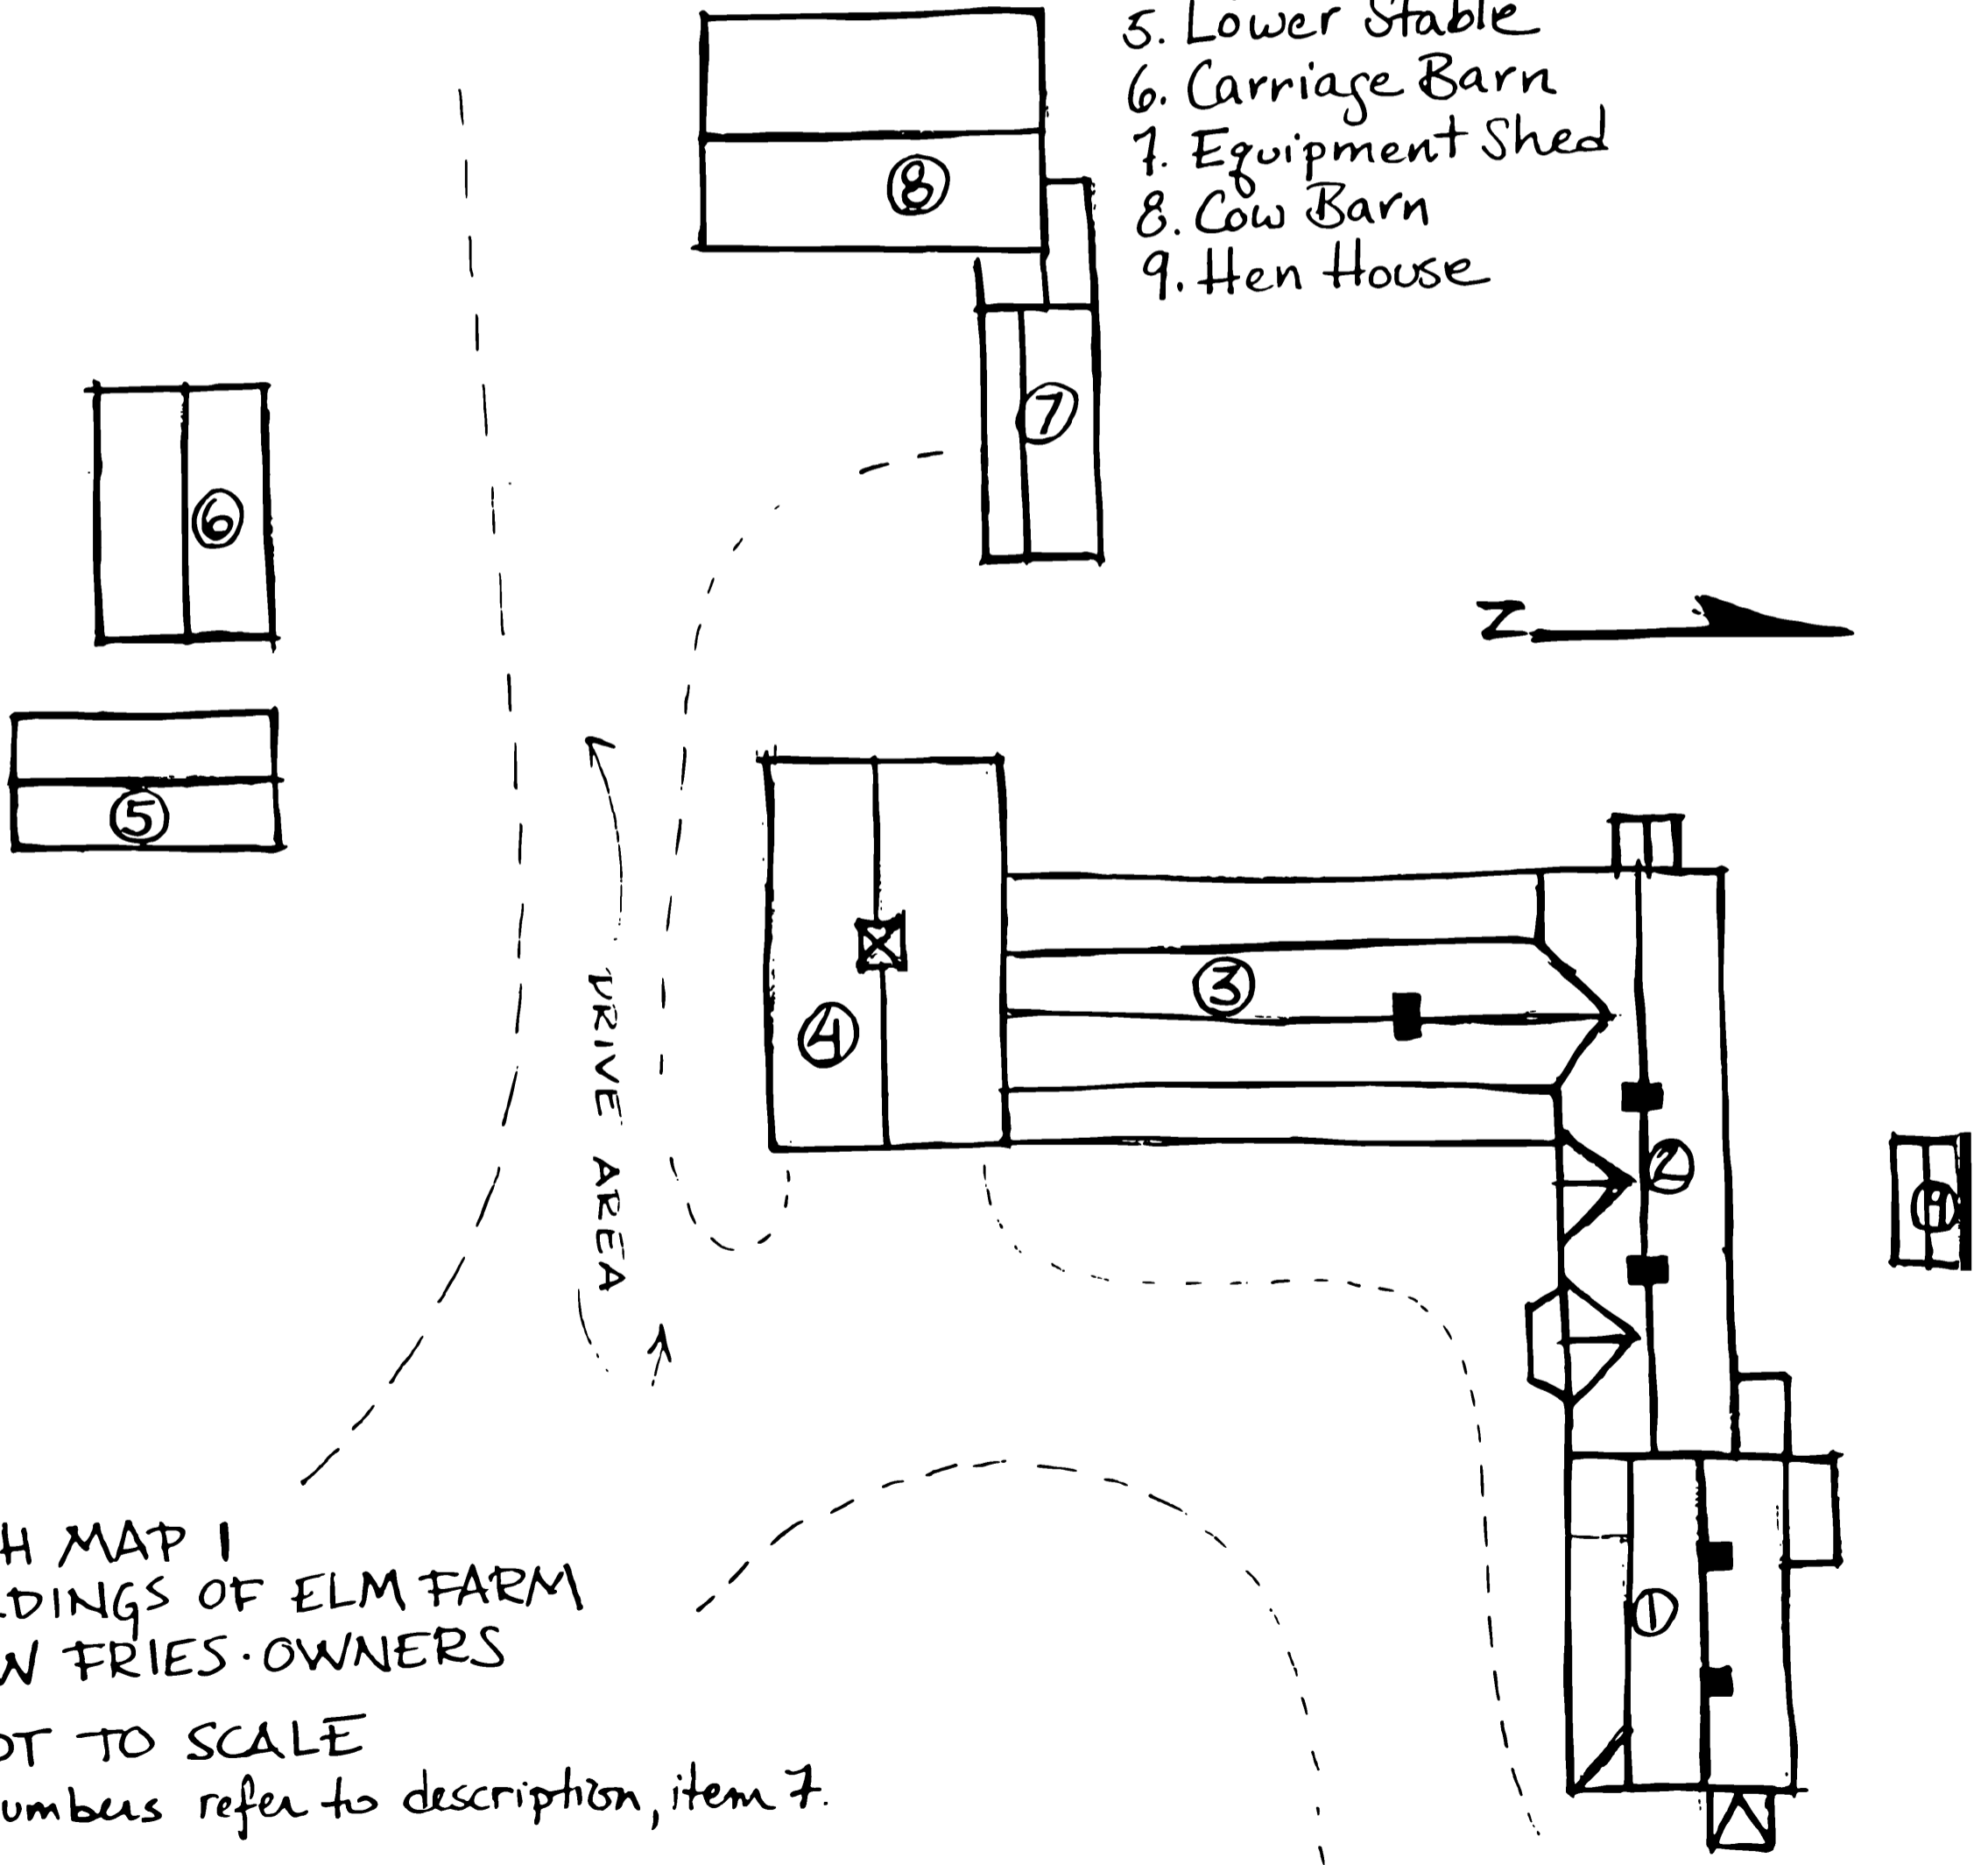 5. Lower Stable
6. Carriage Barn
7. Equipment Shed
8. Cow Barn
9. Hen House
8
7
6
N
5
3
4
DRIVE AREA
2
1
H MAP 1
DINGS OF ELM FARM
N FRIES · OWNERS
OT TO SCALE
umbers refer to description, item 7.